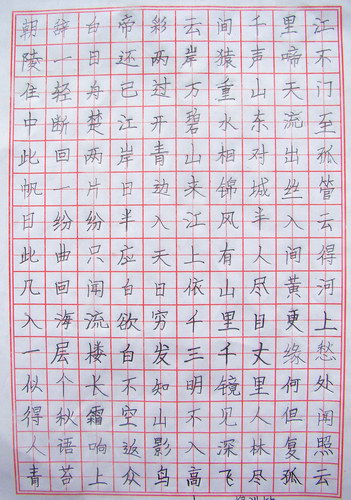 朝辞白帝彩云间千里江
陵一日还两岸猿声啼不
住轻舟已过万重山天门
中断楚江开碧水东流至
此回两岸青山相对出孤
帆一片日边来锦城丝管
日纷纷半入江风半入云
此曲只应天上有人间得
几回闻白日依山尽黄河
入海流欲穷千里目更上
一层楼白发三千丈缘愁
似个长不知明镜里何处
得秋霜空山不见人但闻
人语响返影入深林复照
青苔上众鸟高飞尽孤云